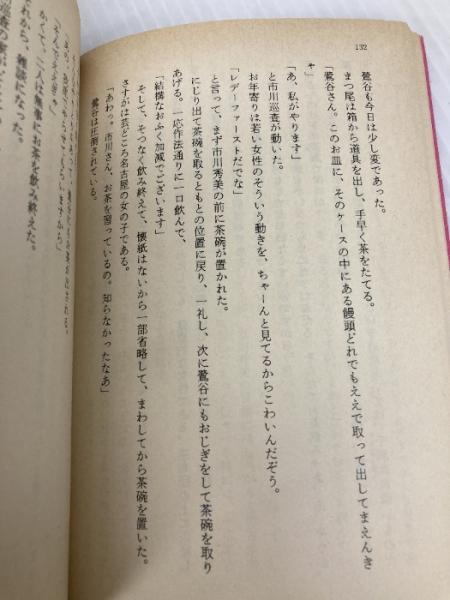 132
鶯谷も今日は少し変であった。
まつ尾は箱から道具を出し、手早く茶をたてる。
「鶯谷さん。このお皿に、そのケースの中にある饅頭どれでもええで取って出してまえんき
ゃ」
「あ、私がやります」
と市川巡査が動いた。
お年寄りは若い女性のそういう動きを、ちゃーんと見てるからこわいんだぞう。
「レデーファーストだでな」
と言って、まず市川秀美の前に茶碗が置かれた。
にじり出て茶碗を取るともとの位置に戻り、一礼し、次に鶯谷にもおじぎをして茶碗を取り
あげる。一応作法通りに一口飲んで、
「結構なおふく加減でございます」
そして、そつなく飲み終えて、懐紙はないから一部省略して、まわしてから茶碗を置いた。
さすがは芸どころ名古屋の女の子である。
「あわっ。市川さん、お茶を習っているの。知らなかったなあ」
鶯谷は圧倒されている。
かくて、二人は無事にお茶を飲み終えた。
それから、雑談になった。